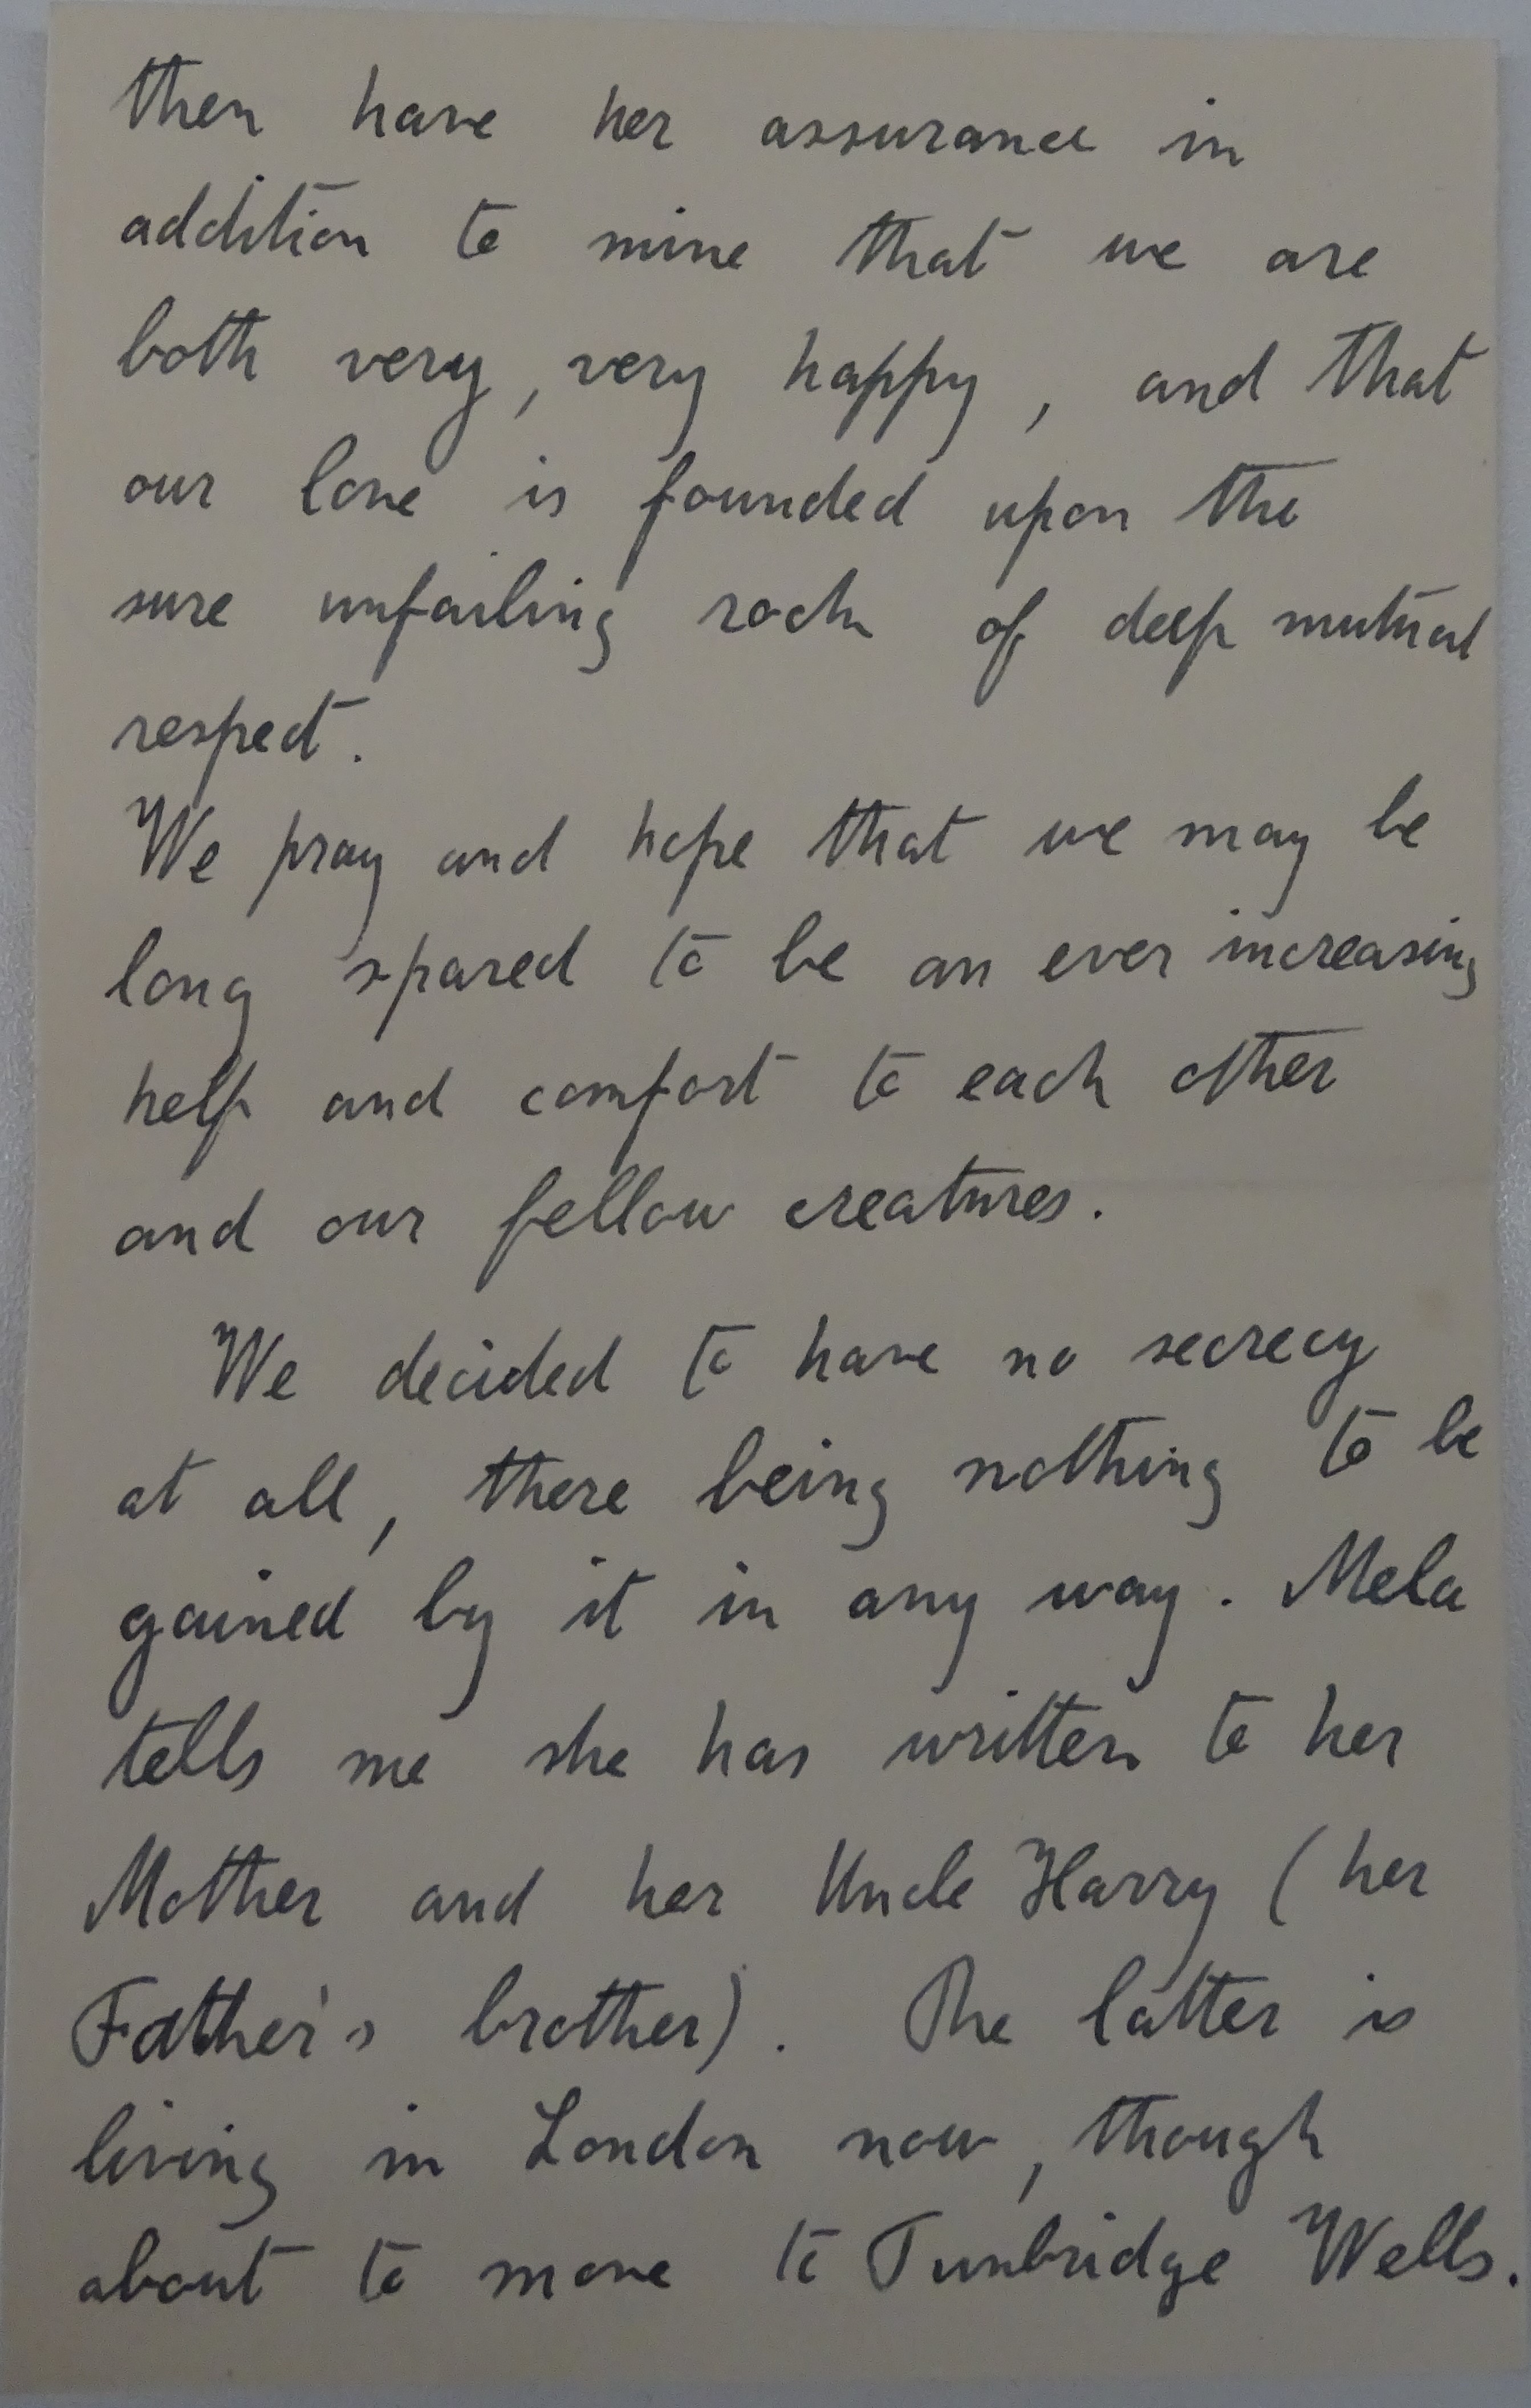 then have her assurance in
addition to mine that we are
both very, very happy, and that
our love is founded upon the
sure unfailing rock of deep mutual
respect.
We pray and hope that we may be
long spared to be an ever increasing
help and comfort to each other
and our fellow creatures.
We decided to have no secrecy
at all, there being nothing to be
gained by it in any way. Mela
tells me she has written to her
Mother and her Uncle Harry (her
Father's brother). The latter is
living in London now, though
about to move to Tunbridge Wells.